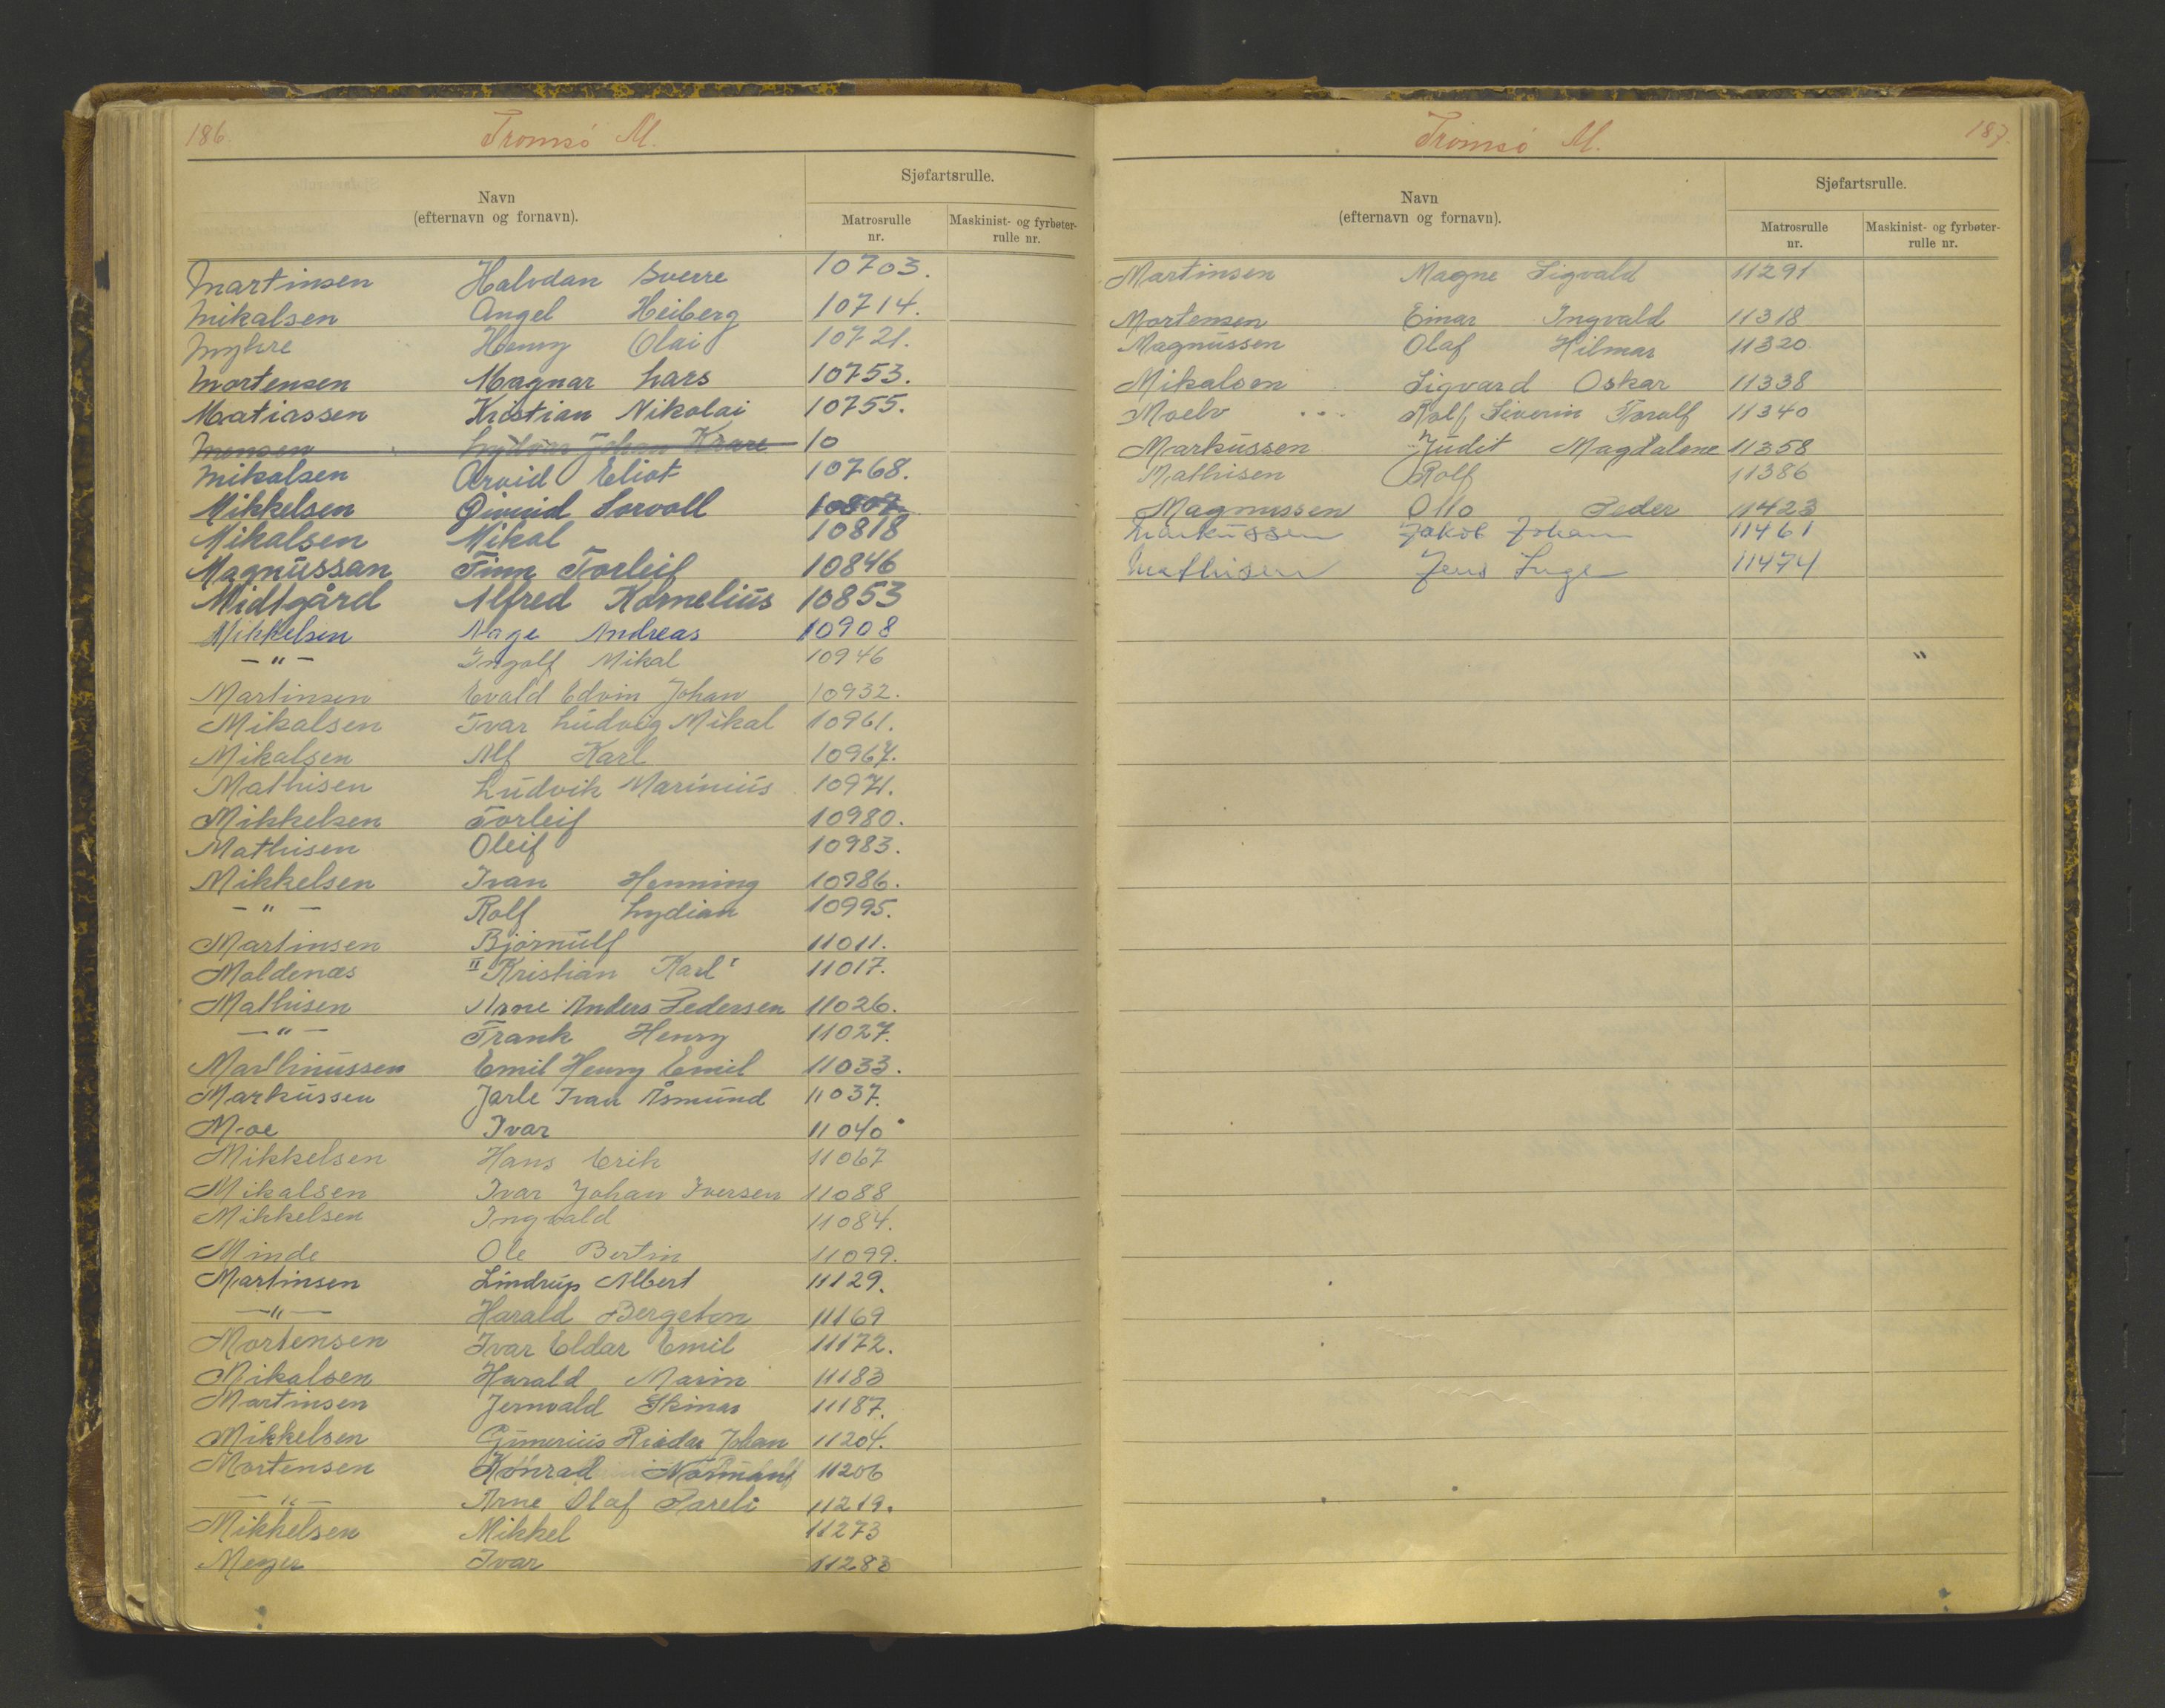 186.
Tromsø M.
Navn
(efternavn og fornavn).
Sjøfartsrulle.
Matrosrulle
nr.
Maskinist- og fyrbøter-
rulle nr.
Martinsen Halvdan Sverre 10703.
Mikalsen Angel Heiberg 10714.
Myhre Henry Olai 10721.
Mortensen Magnar Lars 10753.
Matiassen Kristian Nikolai 10755.
Johan 10
Mikalsen Arvid Eliot 10768.
Mikkelsen Øivind Sorvoll 10807.
Mikalsen Mikal 10818
Magnussan Finn Torleif 10846
Midtgård Alfred Kornelius 10853
Mikkelsen Aage Andreas 10908
— " — Ingolf Mikal 10946
Martinsen Evald Edvin Johan 10932.
Mikalsen Ivar Ludvig Mikal 10961.
Mikalsen Alf Karl 10967.
Mathisen Ludvik Marinius 10971.
Mikkelsen Torleif 10980.
Mathisen Oleif 10983.
Mikkelsen Ivan Henning 10986.
— " — Rolf Lydian 10995.
Martinsen Bjørnulf 11011.
Moldenæs "Kristian Karl" 11017.
Mathisen Arne Anders Pedersen 11026.
— " — Frank Henry 11027.
Marthinussen Emil Henry Emil 11033.
Markussen Jarle Ivan Åsmund 11037.
Moe Ivar 11040
Mikkelsen Hans Erik 11067
Mikalsen Ivar Johan Iversen 11088
Mikkelsen Ingvald 11084.
Minde Ole Bertin 11099.
Martinsen Lindrup Albert 11129.
— " — Harald Bergeton 11169
Mortensen Ivar Eldar Emil 11172.
Mikalsen Harald Marin 11183
Martinsen Jernvald 11187.
Mikkelsen Johan 11204.
Mortensen Konrad Normann 11206
— " — Arne Olaf Pareli 11219.
Mikkelsen Mikkel 11273
Meyer Ivar 11283
187.
Tromsø M.
Navn
(efternavn og fornavn).
Sjøfartsrulle.
Matrosrulle
nr.
Maskinist- og fyrbøter-
rulle nr.
Martinsen Magne Sigvald 11291
Mortensen Einar Ingvald 11318
Magnussen Olaf Hilmar 11320
Mikalsen Sigvard Oskar 11338
Moelv Rolf Siverin Torolf 11340
Markussen Judit Magdalene 11358
Mathisen Rolf 11386
Magnussen Otto Peder 11423
Markussen Jakob Johan 11461
Mathisen Jens Inge 11474
"